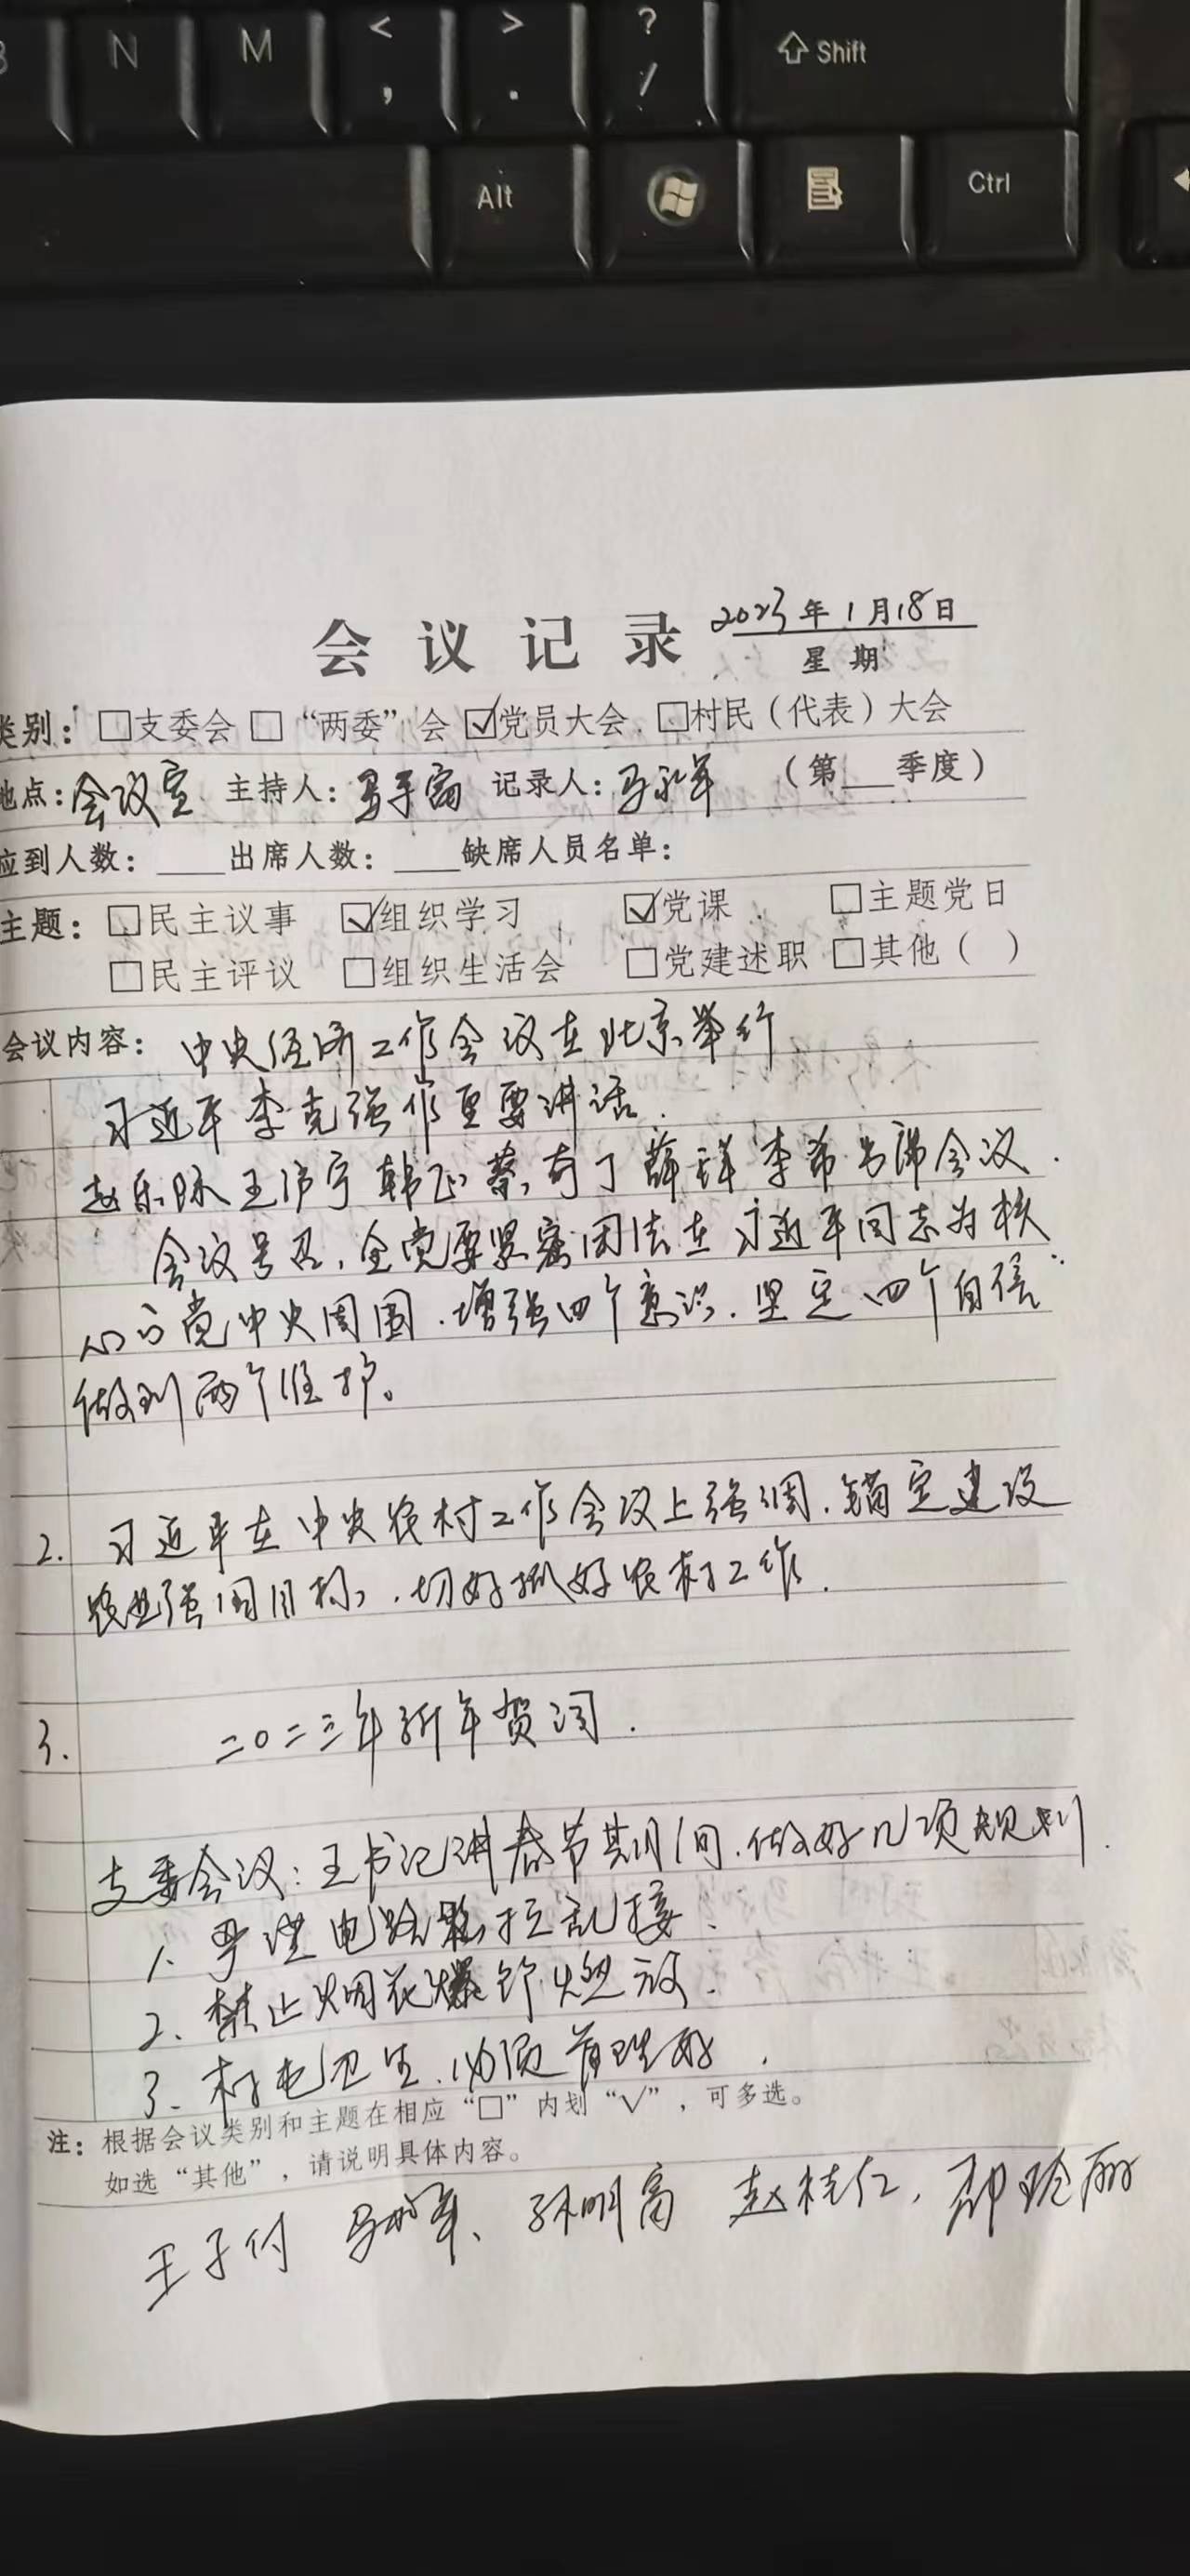 N M < , > . ? / Shift
Alt Ctrl
会议记录 2023年1月18日
星期
类别：□支委会 □“两委”会 ☑党员大会 □村民（代表）大会
地点：会议室 主持人： 记录人：马永军 （第 季度）
应到人数： 出席人数： 缺席人员名单：
主题：□民主议事 ☑组织学习 ☑党课 □主题党日
□民主评议 □组织生活会 □党建述职 □其他（ ）
会议内容：中央经济工作会议在北京举行
习近平李克强作重要讲话.
赵乐际王沪宁韩正蔡奇丁薛祥李希出席会议.
会议号召，全党要紧密团结在习近平同志为核
心的党中央周围.增强四个意识.坚定四个自信
做到两个维护。
2. 习近平在中央农村工作会议上强调.锚定建设
农业强国目标，切好抓好农村工作.
3. 二〇二三年新年贺词.
支委会议：王书记讲春节期间.做好几项规划.
1、电路私拉乱接.
2、禁止烟花爆竹燃放.
3、村屯卫生.必须管理好.
注：根据会议类别和主题在相应“□”内划“√”，可多选。
如选“其他”，请说明具体内容。
王子付 孙明高 赵桂仁，